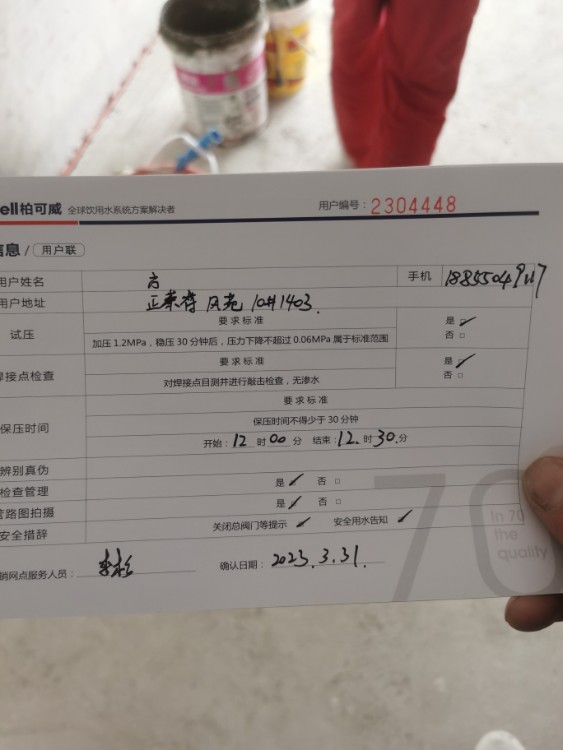 ell柏可威 全球饮用水系统方案解决者 用户编号：2304448
信息 / 用户联
用户姓名 方 手机
用户地址 正荣府 风苑 10#1403
试压 要求标准 是 ✓ 否 □
加压 1.2MPa，稳压 30 分钟后，压力下降不超过 0.06MPa 属于标准范围
焊接点检查 要求标准 是 ✓ 否 □
对焊接点目测并进行敲击检查，无渗水
保压时间 要求标准
保压时间不得少于 30 分钟
开始：12 时 00 分 结束：12 时 30 分
辨别真伪
检查管理 是 ✓ 否 □
管路图拍摄 是 ✓ 否 □
安全措辞 关闭总阀门等提示 ✓ 安全用水告知 ✓
销网点服务人员： 确认日期：2023.3.31.
70
In 70
the
quality